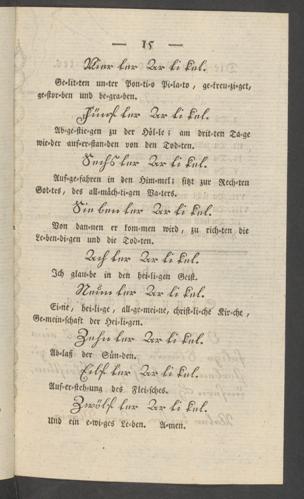 — 15 —
Vier ter Ar ti kel.
Ge-lit-ten un-ter Pon-ti-o Pi-la-to, ge-kreu-zi-get,
ge-stor-ben und be-gra-ben.
Fünf ter Ar ti kel.
Ab-ge-stie-gen zu der Höl-le; am drit-ten Ta-ge
wie-der auf-er-stan-den von den Tod-ten.
Sechs ter Ar ti kel.
Auf-ge-fahren in den Him-mel; sitzt zur Rech-ten
Got-tes, des all-mäch-ti-gen Va-ters.
Sie ben ter Ar ti kel.
Von dan-nen er kom-men wird, zu rich-ten die
Le-ben-di-gen und die Tod-ten.
Ach ter Ar ti kel.
Ich glau-be in den hei-li-gen Geist.
Neun ter Ar ti kel.
Ei-ne, hei-li-ge, all-ge-mei-ne, christ-li-che Kir-che,
Ge-mein-schaft der Hei-li-gen.
Zehn ter Ar ti kel.
Ab-laß der Sün-den.
Eilf ter Ar ti kel.
Auf-er-steh-ung des Flei-sches.
Zwölf ter Ar ti kel.
Und ein e-wi-ges Le-ben. A-men.